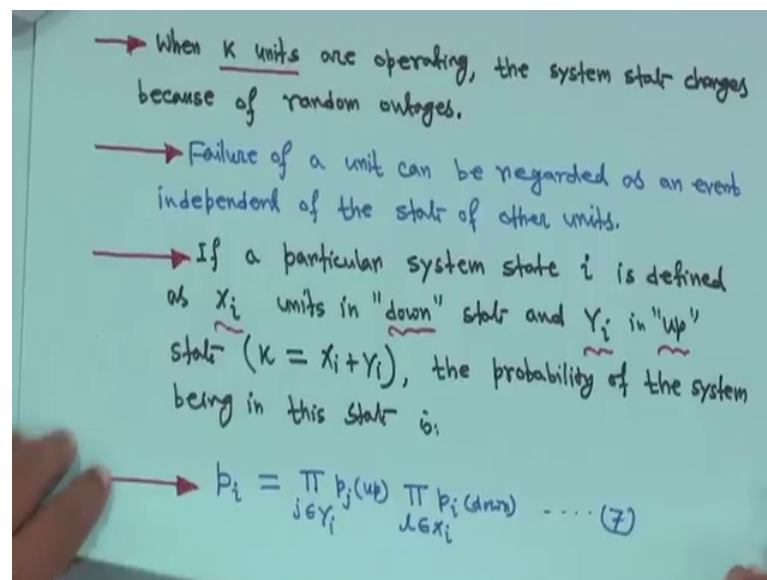 → When K units are operating, the system state changes
because of random outages.
→ Failure of a unit can be regarded as an event
independent of the state of other units.
→ If a particular system state i is defined
as Xi units in "down" state and Yi in "up"
state (K = Xi + Yi), the probability of the system
being in this state is:
→ pi = π pj(up) π pi(down) ..... (7)
j∈Yi l∈Xi